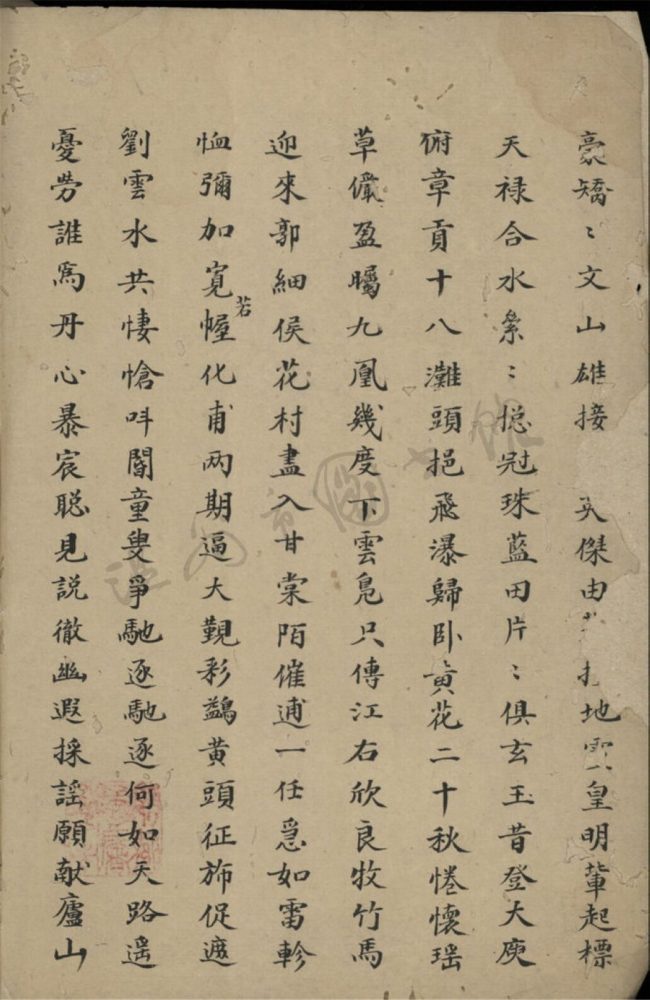 豪矯〻文山雄接 英傑由 地靈皇明輩起標
天禄合水纍〻摠冠珠藍田片〻俱玄玉昔登大庾
俯章貢十八灘頭挹飛瀑歸卧黄花二十秋惓懷瑶
草儼盈矚九凰幾度下雲凫只傳江右欣良牧竹馬
迎來郭細侯花村盡入甘棠陌催逋一任急如雷軫
恤彌加寬若幄化甫两期逼大觐彩鷁黄頭征斾促遮
劉雲水共悽愴呌閽童叟爭馳逐馳逐何如天路遥
憂勞誰爲丹心暴宸聡見説徹幽遐採謡願献廬山